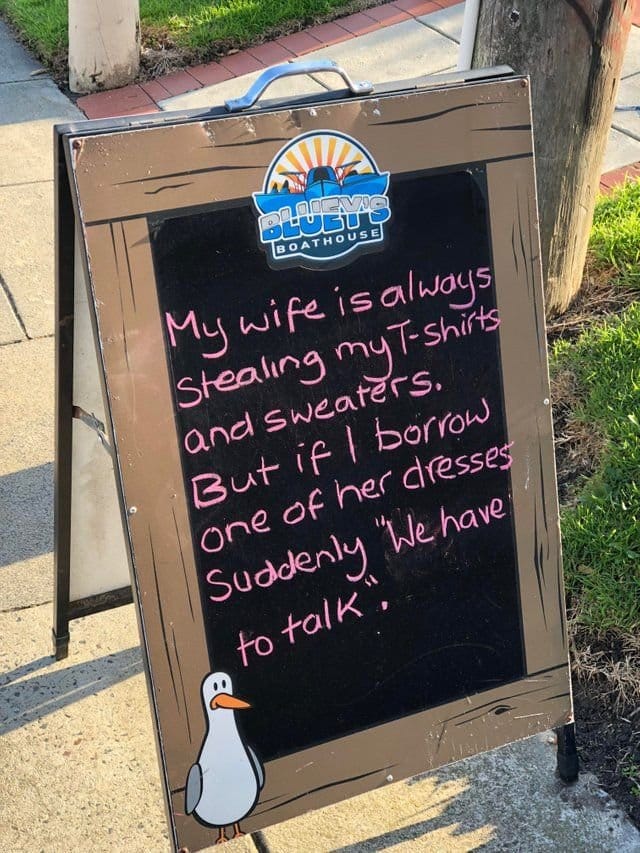 BLUEY'S
BOATHOUSE
My wife is always
Stealing my T-shirts
and sweaters.
But if I borrow
one of her dresses
Suddenly "We have
to talk".